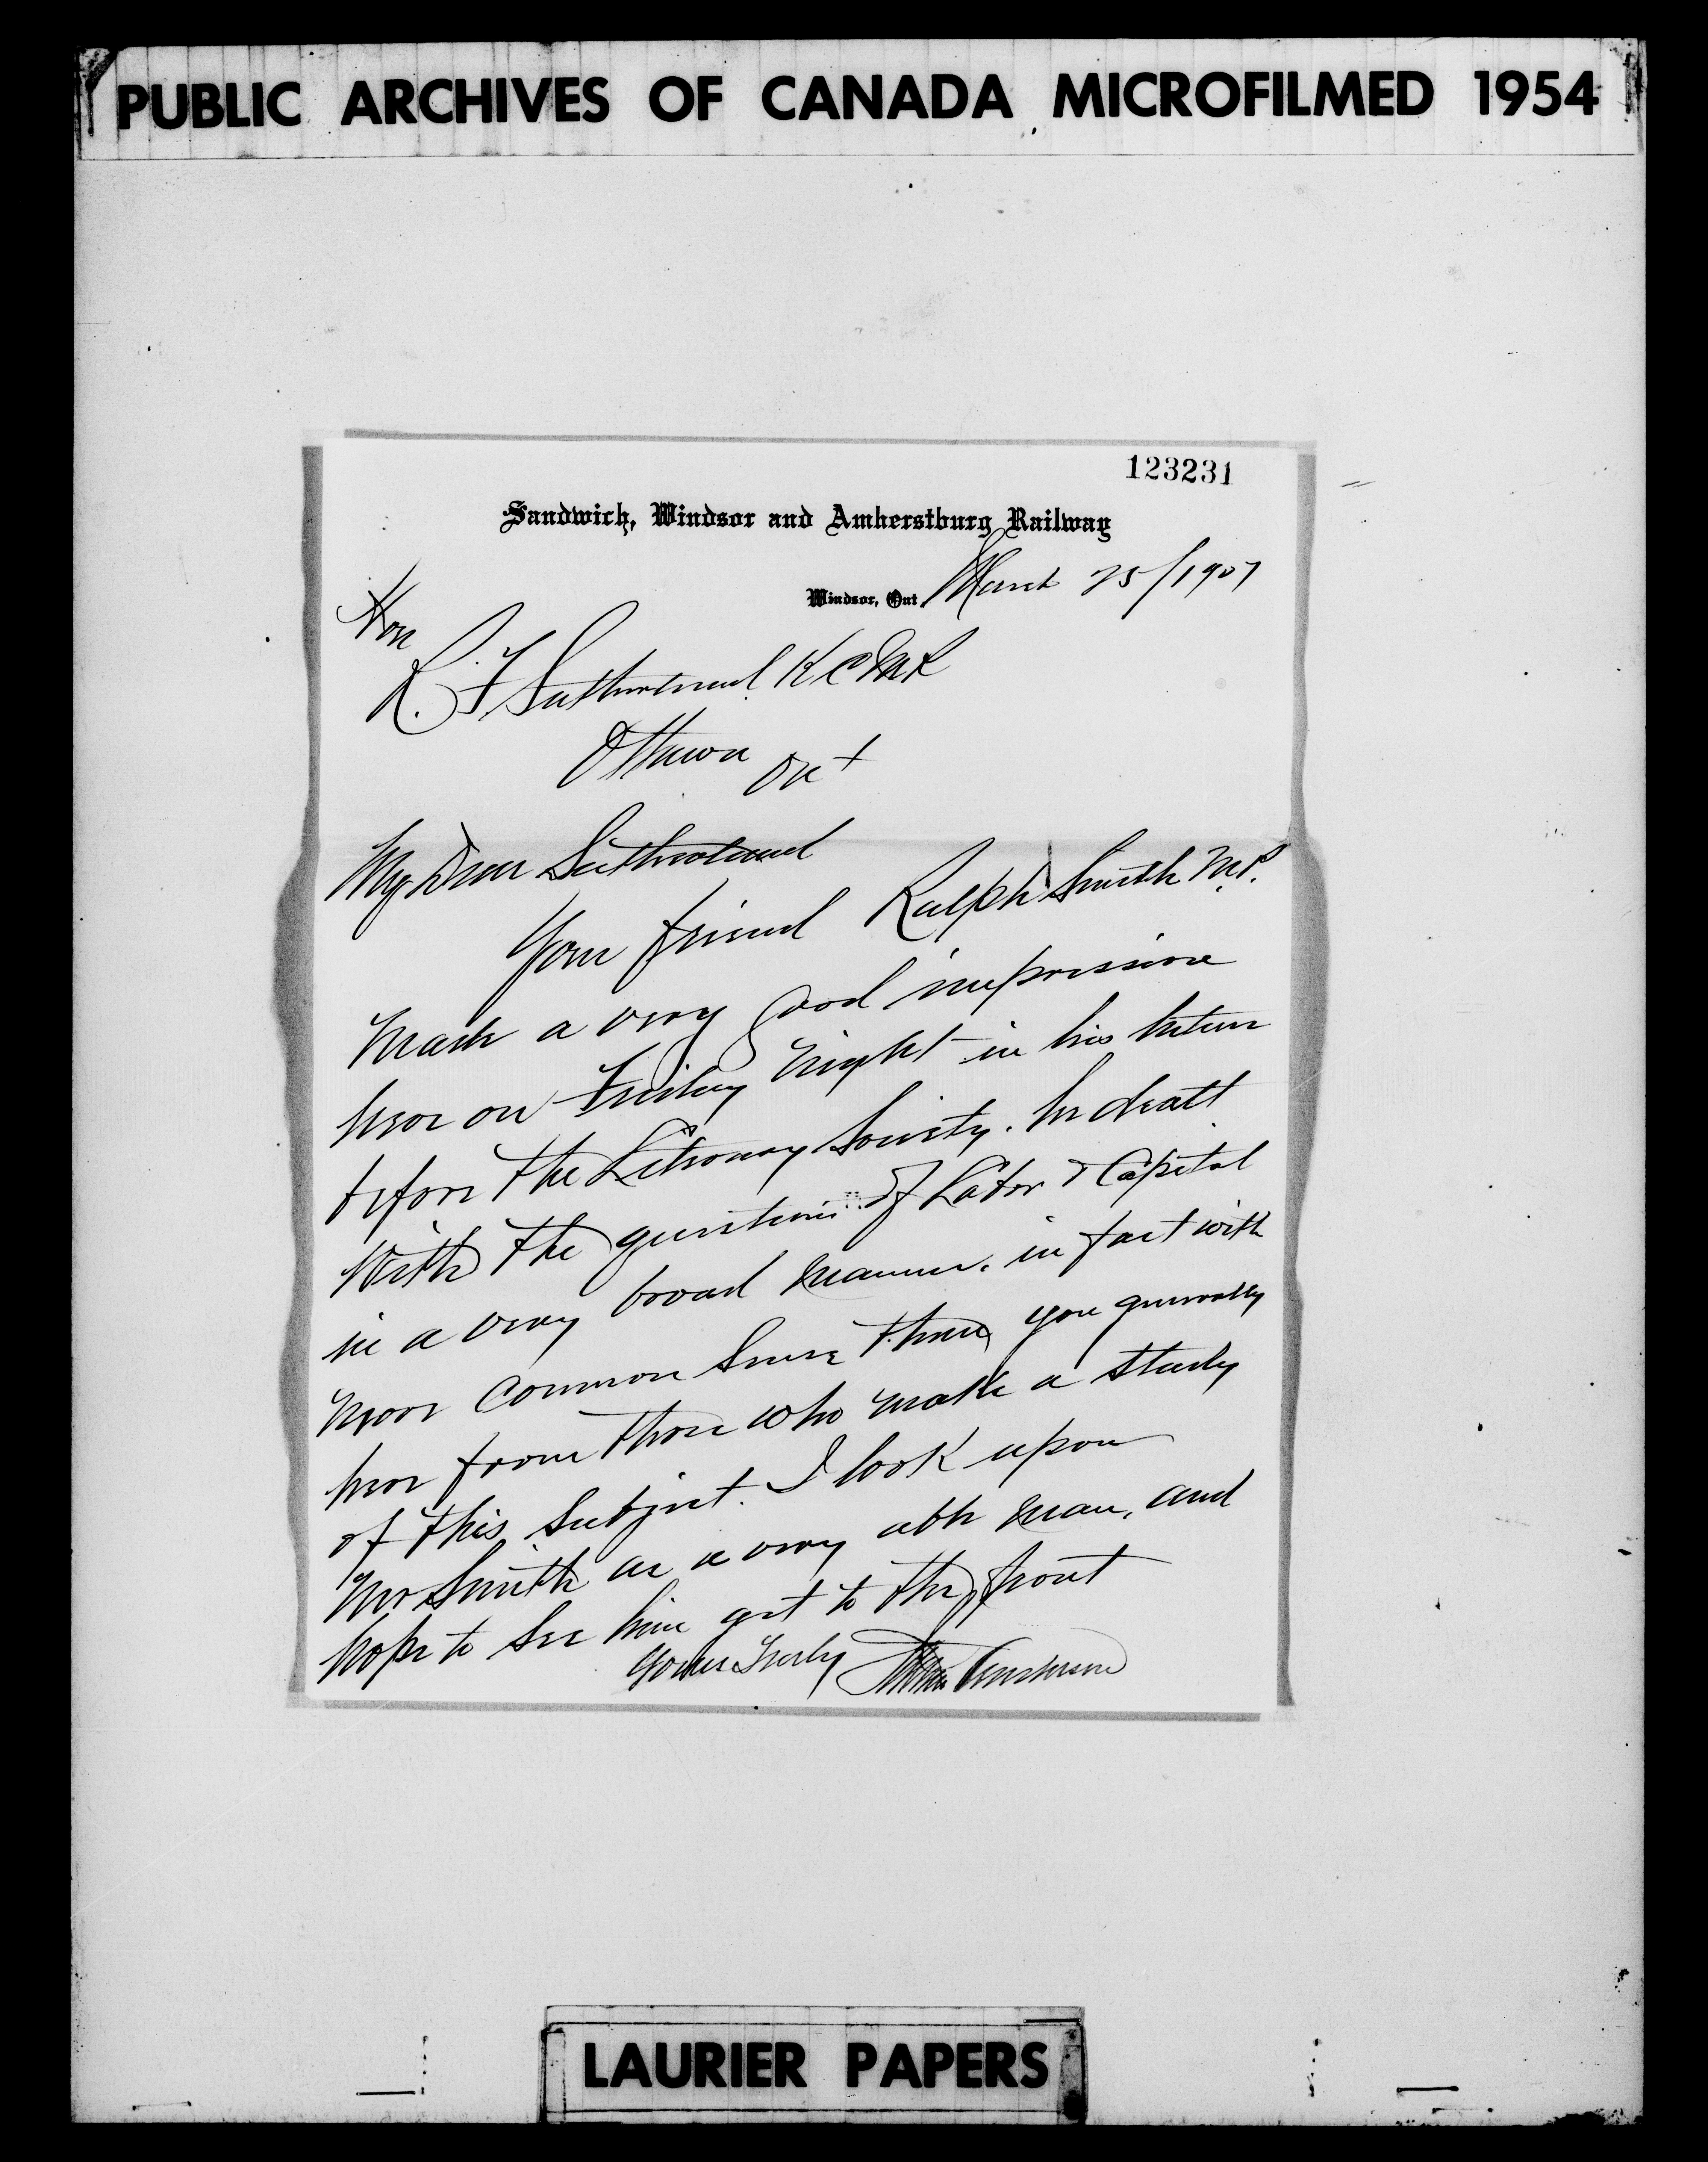 PUBLIC ARCHIVES OF CANADA MICROFILMED 1954
123231
Sandwich, Windsor and Amherstburg Railway
Windsor, Ont March 25/1907
Hon
R. F. Sutherland K C M P
Ottawa Ont
My Dear Sutherland
Your friend Ralph Smith M.P.
made a very good impression
here on Friday night in his lecture
before the Literary Society. He dealt
with the questions of Labor & Capital
in a very broad manner. in fact with
more common sense than you generally
hear from those who make a study
of this subject. I look upon
Mr Smith as a very able man, and
hope to see him get to the front
Yours Truly
LAURIER PAPERS